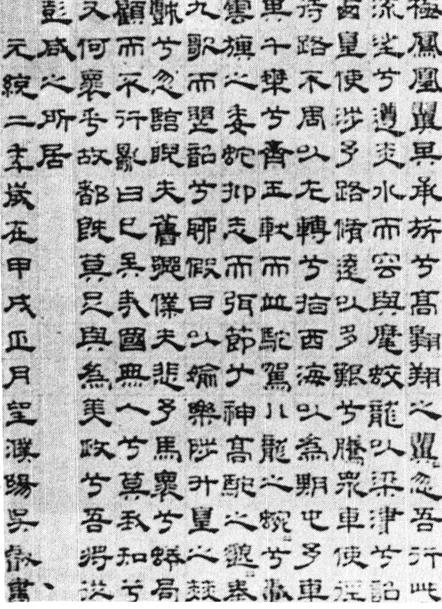 極鳳凰翼其承旂兮高翱翔之翼忽吾行此
流沙兮遵赤水而容與麾蛟龍以梁津兮詔
西皇使涉予路脩遠以多艱兮騰衆車使徑
待路不周以左轉兮指西海以為期屯予車
其千椉兮齊玉軑而並馳駕八龍之蜿兮載
雲旗之委蛇抑志而弭節兮神高馳之邈奏
九歌而舞韶兮聊假日以媮樂陟升皇之赫
戲兮忽臨睨夫舊鄉僕夫悲予馬懷兮蜷局
顧而不行亂曰已矣哉國無人兮莫我知兮
又何懷乎故都既莫足與為美政兮吾將從
彭咸之所居
元統二年歲在甲戌正月望濮陽吳叡書